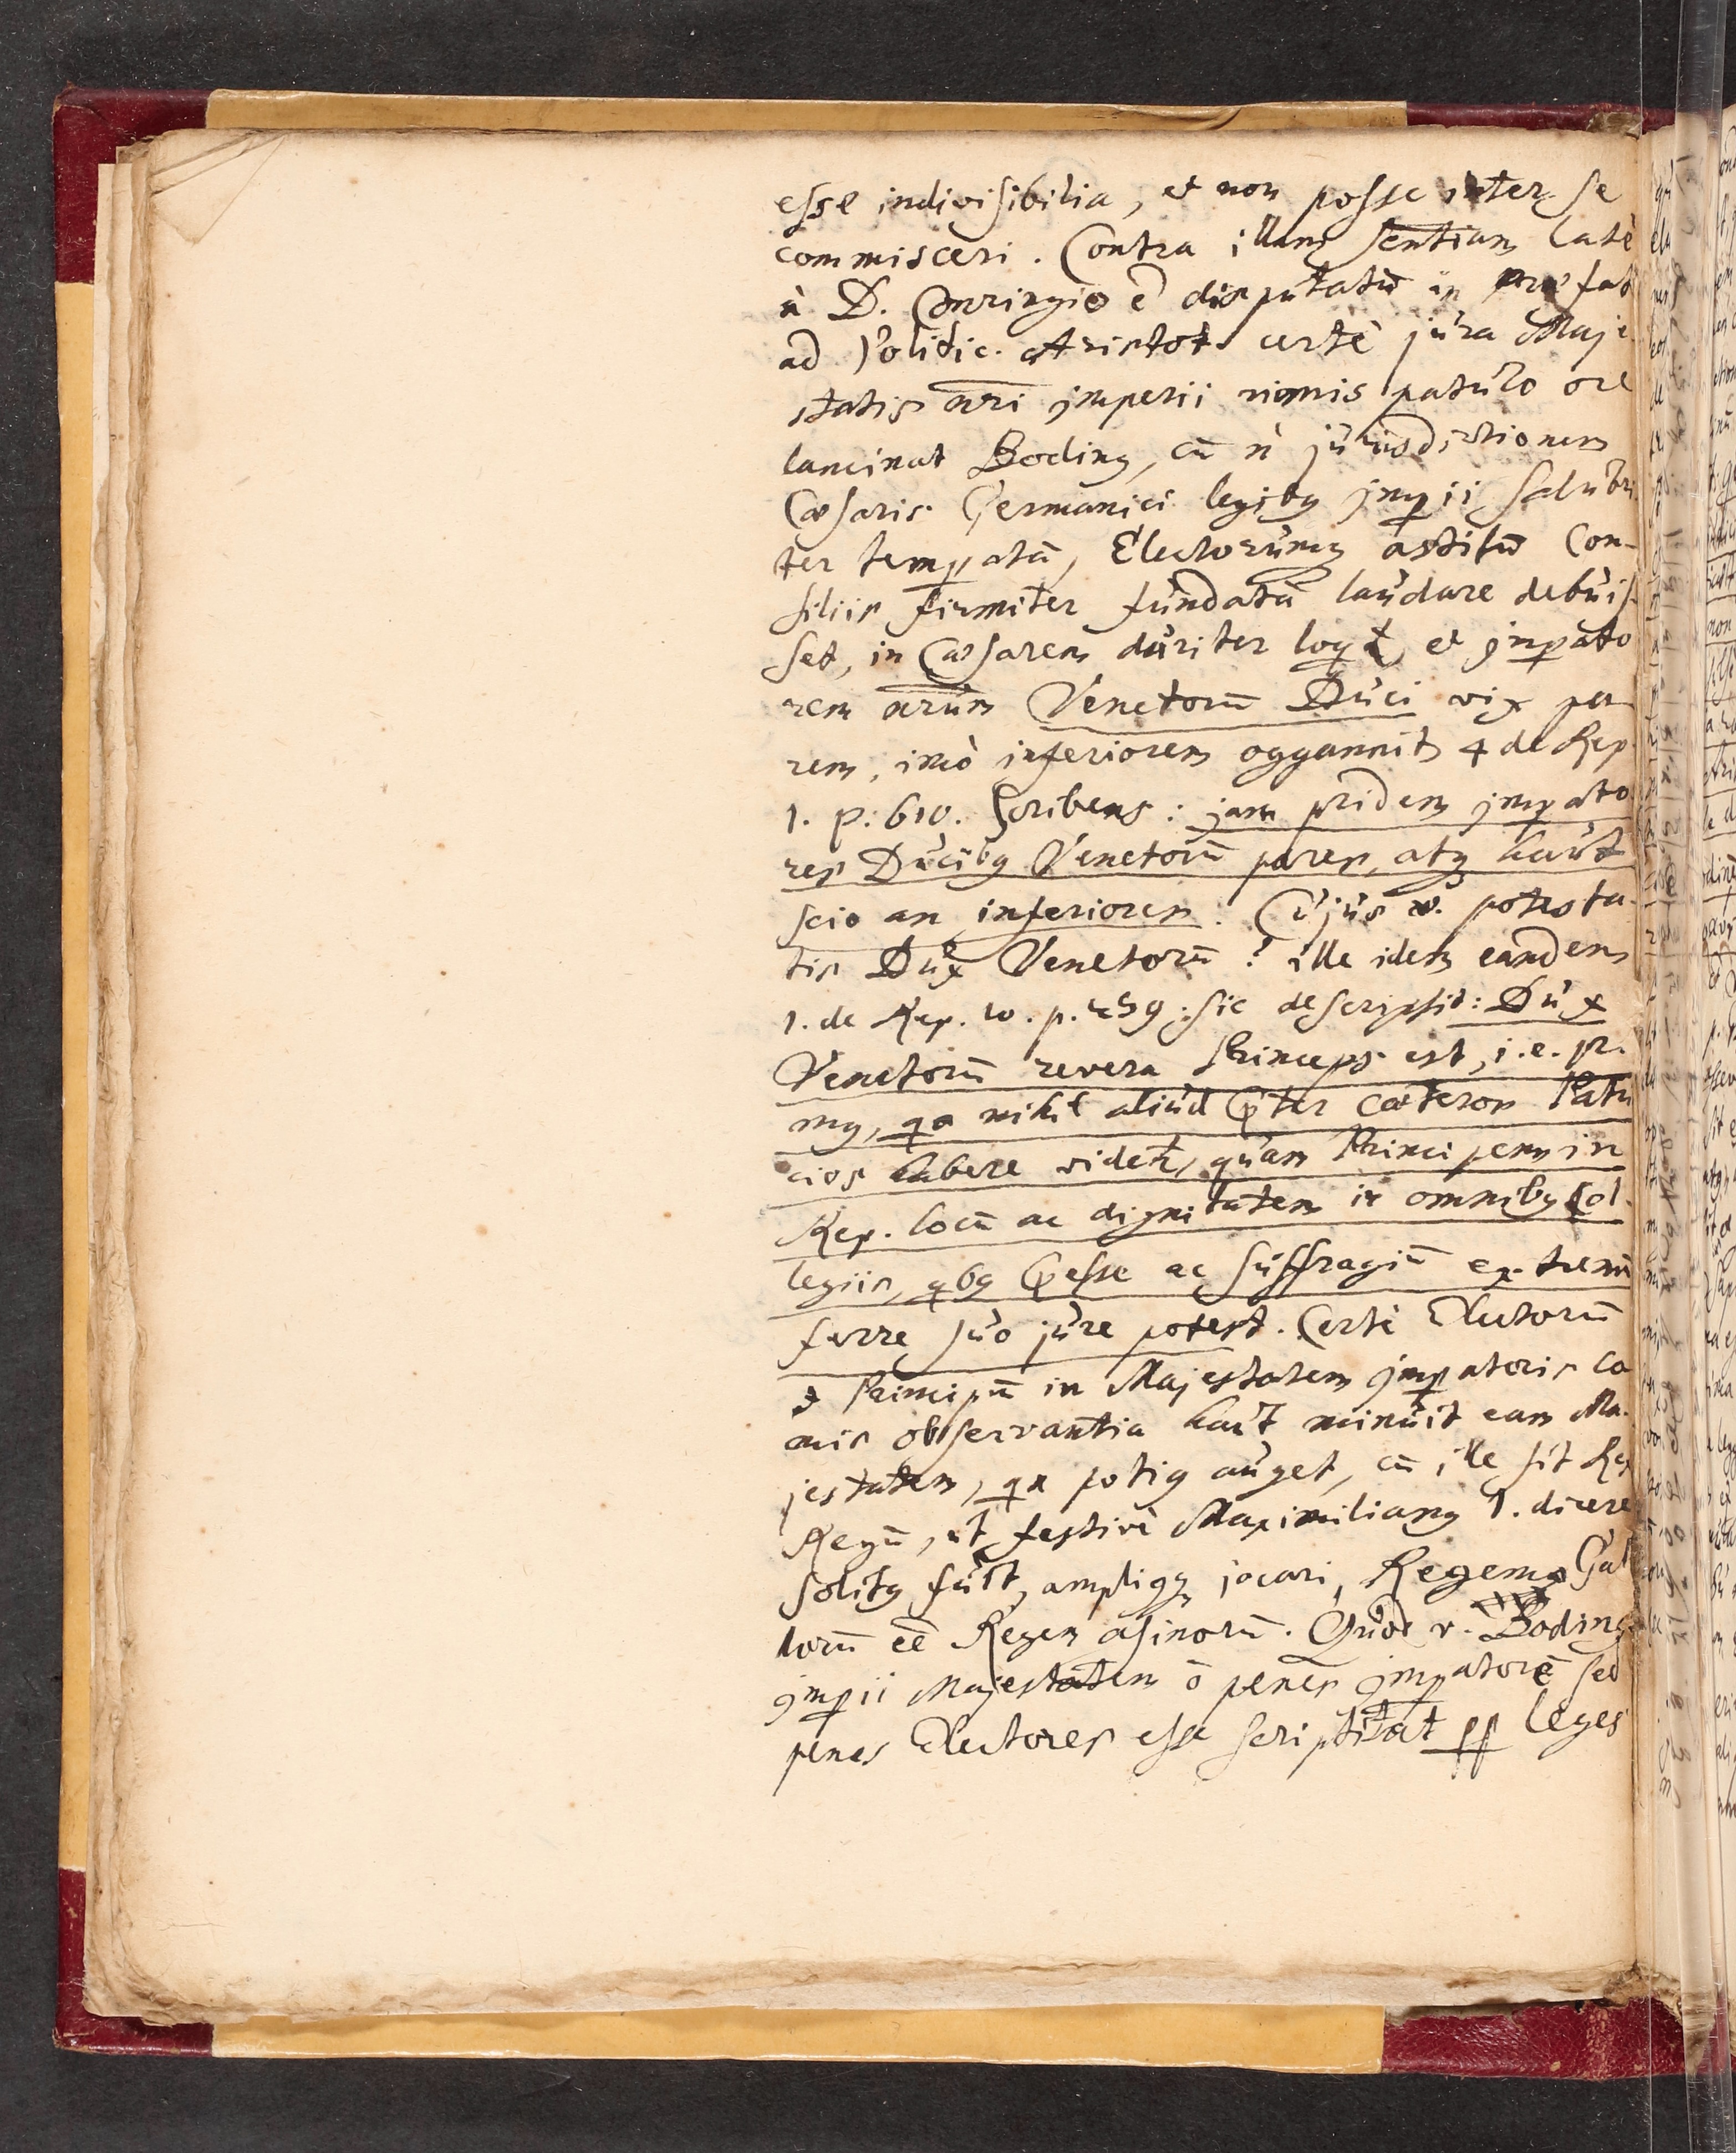 esse indivisibilia, et non posse inter se
commisceri. Contra illam sentiam latè
à D. Conringio ē disputatū in præfat
ad Politic. Aristot. certè jura Maje
statis nri imperii nimis patulo ore
lancinat Bodinq, cū ñ jurisdictionem
Cæsaris Germanici legibq impii salubri
ter tempatā, Electorumq Consiliis
filiis firmiter fundatā laudare debuis
set, in Cæsarem duriter loqt, et impato
rem nrum Venetorū Duci vix pa
rem, imò inferiorem oggannit 4 de Rep
1. p. 610. scribens: jam pridem impato
res Ducibq Venetorū pares, atq haut
scio an inferiores. Cujus v. potesta
tis Dux Venetorū? ille idem eandem
1. de Rep. 10. p. 259. sic descripsit: Dux
Venetorū revera Princeps est, i.e. pri
mq, qa nihil aliud pter cæteros Patri
cios habere videt, quam Principem in
Rep. locū ac dignitatem in omnibq Col
legiis, qbq pesse ac suffragiū extremū
ferre suo jure potest. Certè Electorū
& Principū in Majestatem impatoris co
mis observantia haut minuit eam Ma
jestatem, qa potiq auget, cū ille sit Rex
Regū, ut festivè Maximilianq 1. dicere
solitq fuit, ampliqq jocari, Regemq Gal
lorū eē Regem asinorū. Quod v. Bodinq
impii Majestatem ō penes impatorē sed
penes Electores esse scriptitat pp leges